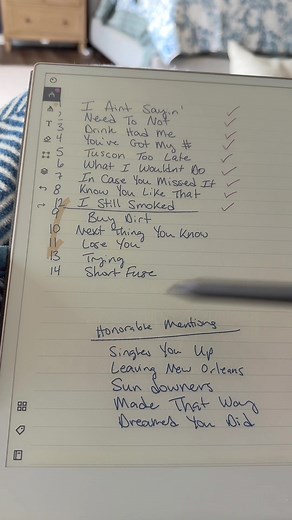 1 I Aint Sayin' ✓
2 Need To Not ✓
3 Drink Had Me ✓
4 You've Got My # ✓
5 Tuscon Too Late ✓
6 What I Wouldnt Do ✓
7 In Case You Missed It ✓
8 Know You Like That ✓
12 I Still Smoked
9 Buy Dirt
10 Next Thing You Know
11 Lose You
13 Trying
14 Short Fuse
Honorable Mentions
Singles You Up
Leaving New Orleans
Sun downers
Made That Way
Dreamed You Did